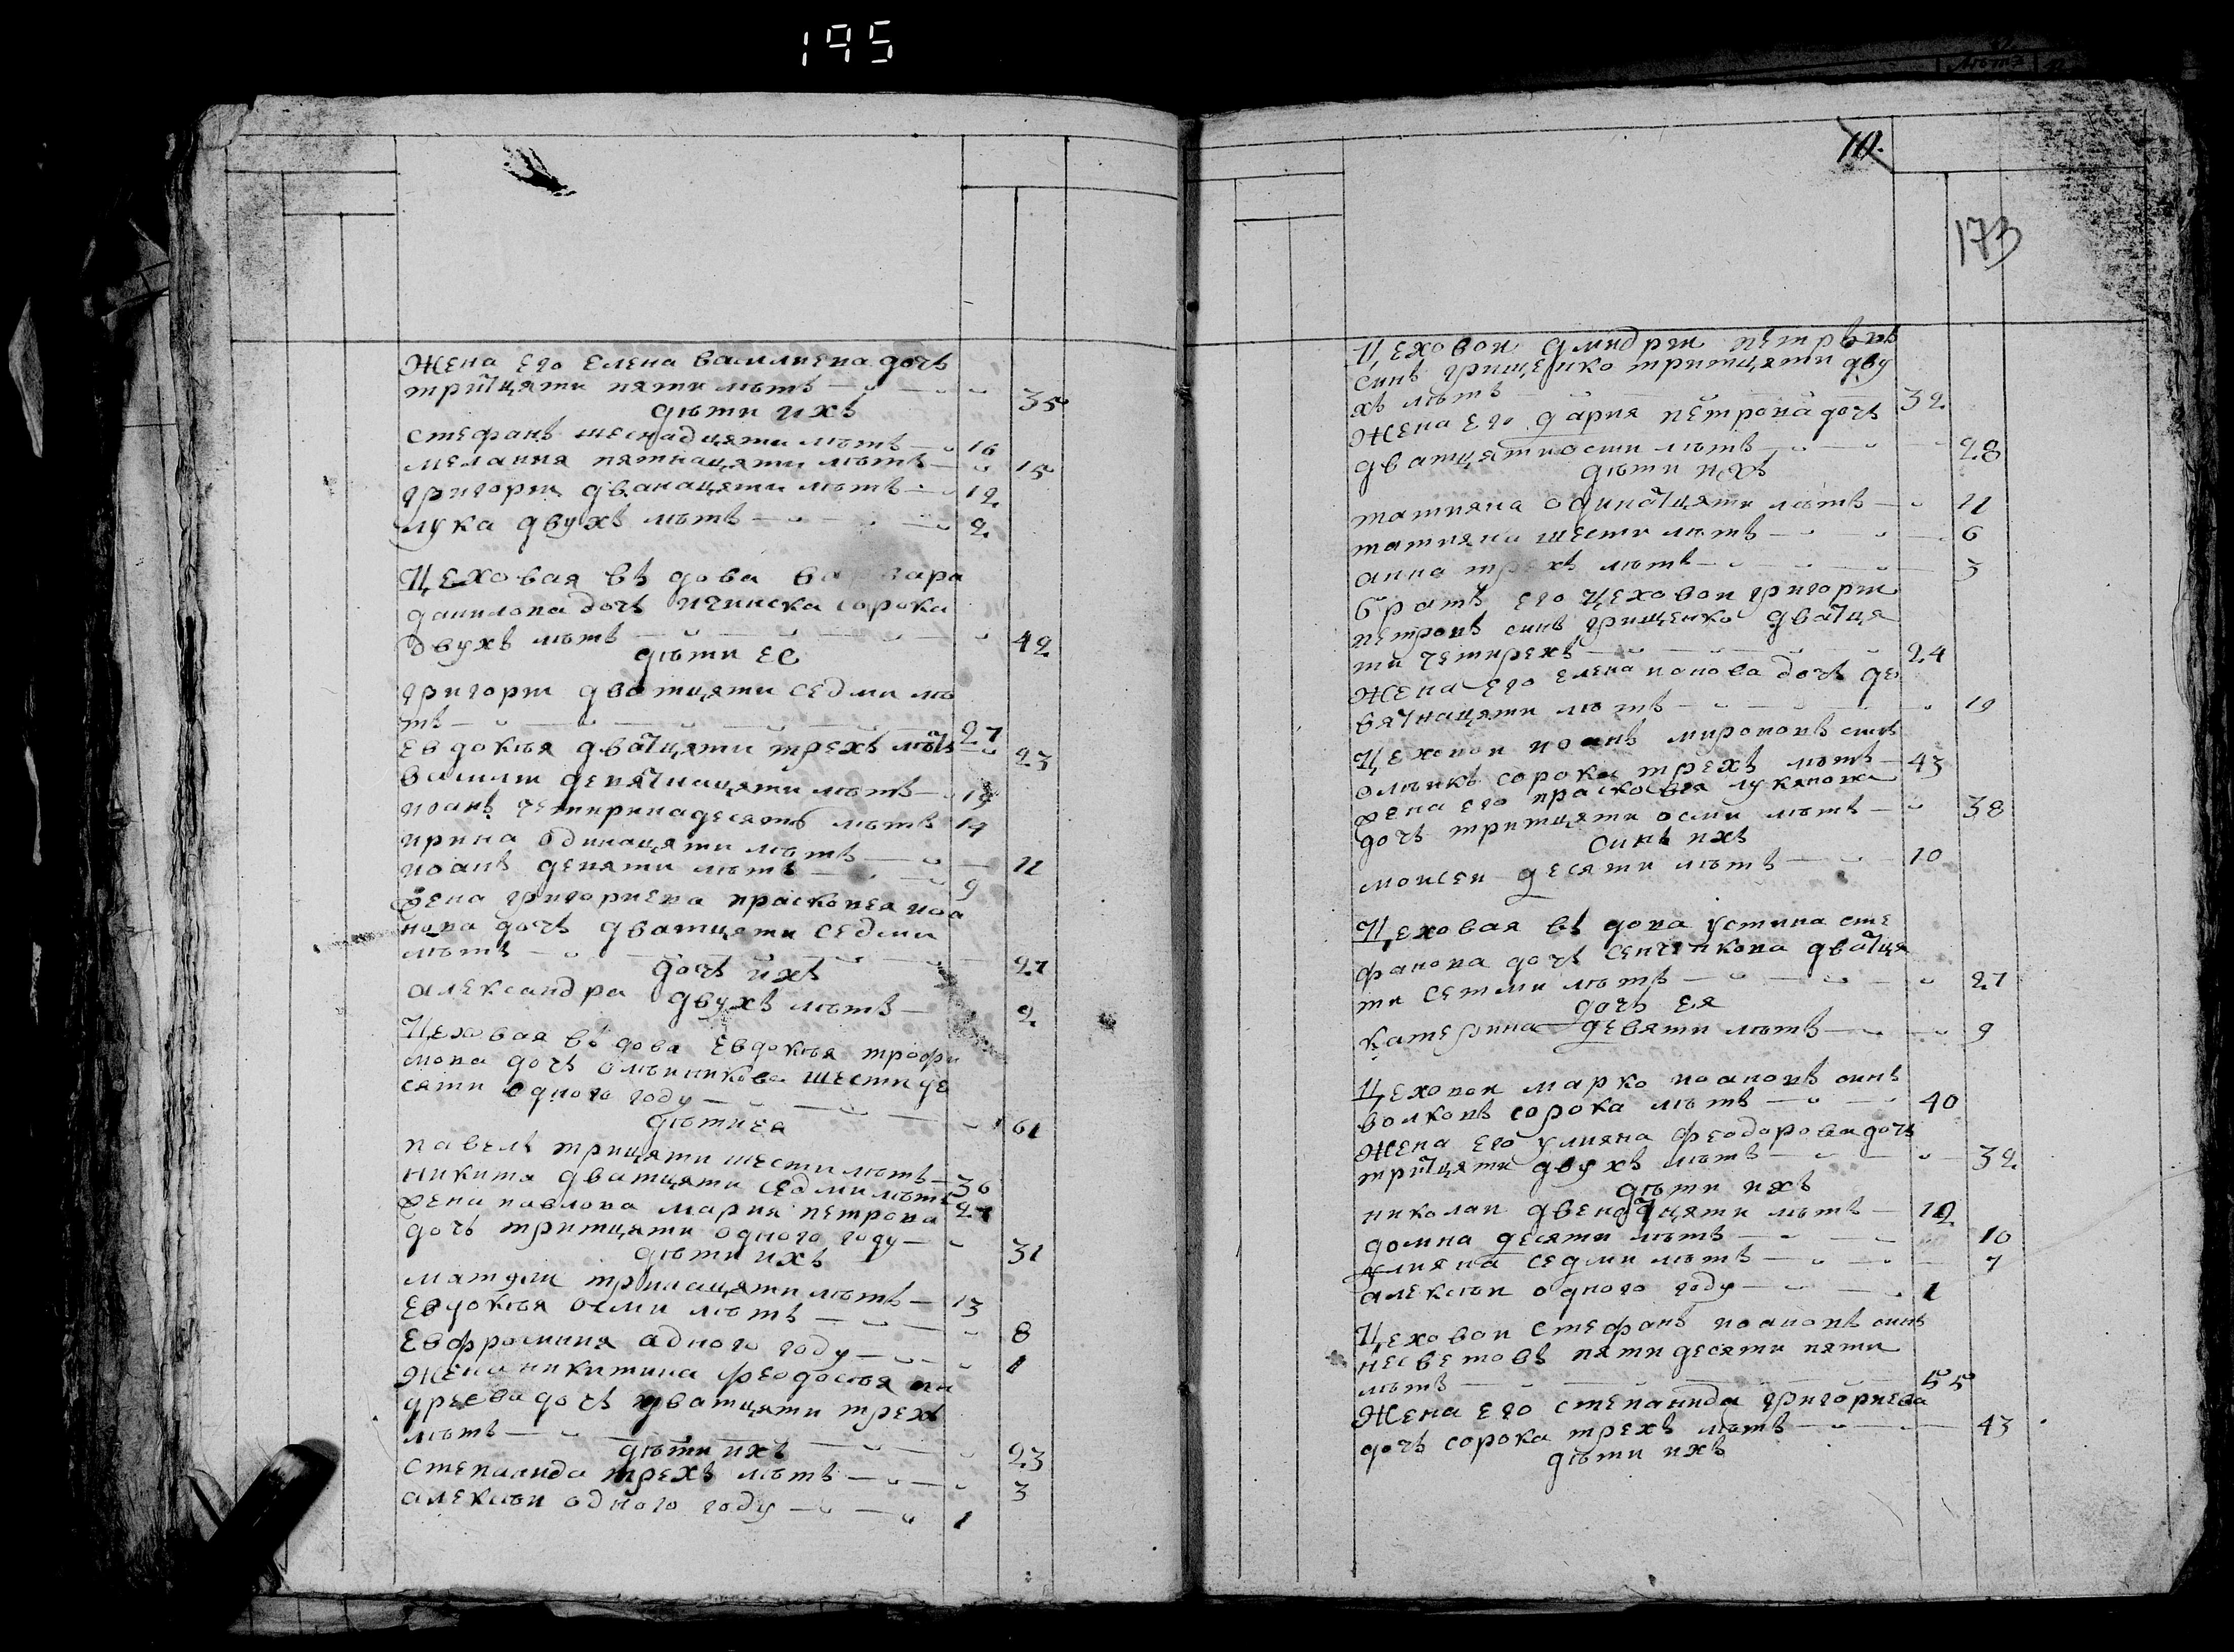 195
Жена его Елена Василиева дочь
трйтцяти пяти лѣтъ 35
дѣти ихъ
Стефанъ шеснадцяти лѣтъ 16
Мелания пятнацяти лѣтъ 15
Григори дванацяти лѣтъ 12
Лука двухъ лѣтъ 2
Цеховая въдова Варвара
Данилова дочь сорока
двухъ лѣтъ 42
дѣти ее
Григори дватцяти седми лѣ
тъ 27
Евдокѣя дватцяти трехъ лѣтъ 23
Васили девятнацяти лѣтъ 19
Иоанъ четиринадесять лѣтъ 14
Ирина одинацяти лѣтъ 11
Иоанъ девяти лѣтъ 9
жена Григориева Прасковея Иоа
нова дочь дватцяти седми
лѣтъ 27
дочь ихъ
Александра двухъ лѣтъ 2
Цеховая въдова Евдокѣя Трофи
мова дочь Олѣиникова шестиде
сяти одного году 61
дѣти ея
Павелъ трицяти шести лѣтъ 36
Никита дватцяти седми лѣтъ 27
жена Павлова Мария Петрова
дочь тритцяти одного году 31
дѣти ихъ
Матфеи тринацяти лѣтъ 13
Евдокѣя осми лѣтъ 8
Евфросиния адного году 1
Жена Никитина Феодосѣя Ан
дреева дочь дватцяти трехъ
лѣтъ 23
дѣти ихъ
Степанида трехъ лѣтъ 3
Алексѣи одного году 1
10.
173
Цеховои Дмидри Петровъ
синъ Грищенко тритцяти дву
хъ лѣтъ 32
Жена его Дария Петрова дочь
дватцятиосми лѣтъ 28
дѣти ихъ
Татияна одинатцяти лѣтъ 11
Татияна шести лѣтъ 6
Анна трехъ лѣтъ 3
братъ его цеховои Григори
Петровъ синъ Грищенко дватця
ти четирехъ 24
Жена его Елена Попова дочь де
вятнацяти лѣтъ 19
Цеховои Иоанъ Мироновъ синъ
Олѣикъ сорока трехъ лѣтъ 43
жена его Прасковѣя Лукянова
дочь тритцяти осми лѣтъ 38
синъ ихъ
Моисеи десяти лѣтъ 10
Цеховая въдова Устина Сте
фанова дочь Сенчикова дватця
ти сетми лѣтъ 27
дочь ея
Катерина девяти лѣтъ 9
Цеховои Марко Иоановъ синъ
Волковъ сорока лѣтъ 40
Жена его Улияна Феодорова дочь
трйтцяти двухъ лѣтъ 32
дѣти ихъ
Николаи двенатцяти лѣтъ 12
Домна десяти лѣтъ 10
Улияна седми лѣтъ 7
Алексѣи одного году 1
Цеховои Стефанъ Иоановъ синъ
Несветовъ пятидесяти пяти
лѣтъ 55
Жена его Степанида Григориева
дочь сорока трехъ лѣтъ 43
дѣти ихъ